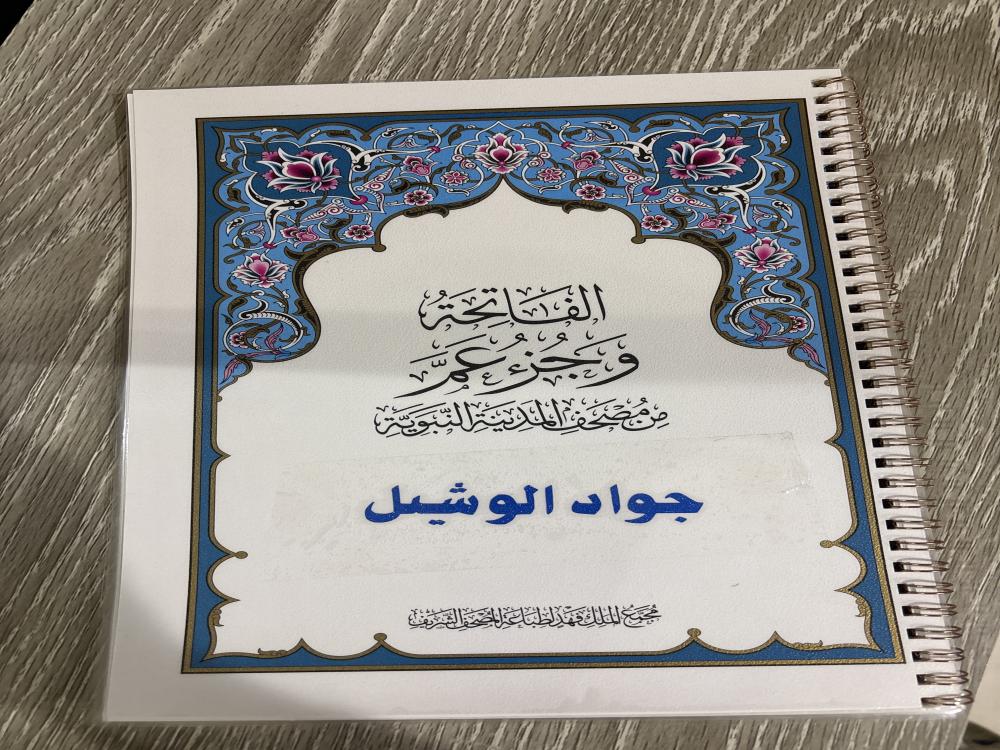 الفَاتِحَةُ
وَجُزْءُ عَمَّ
مِن مُصْحَفِ المَدِينَةِ النَّبَوِيَّةِ
جواد الوشيل
مُجَمَّع المَلِك فَهْد لِطِبَاعَةِ المُصْحَفِ الشَّرِيفِ